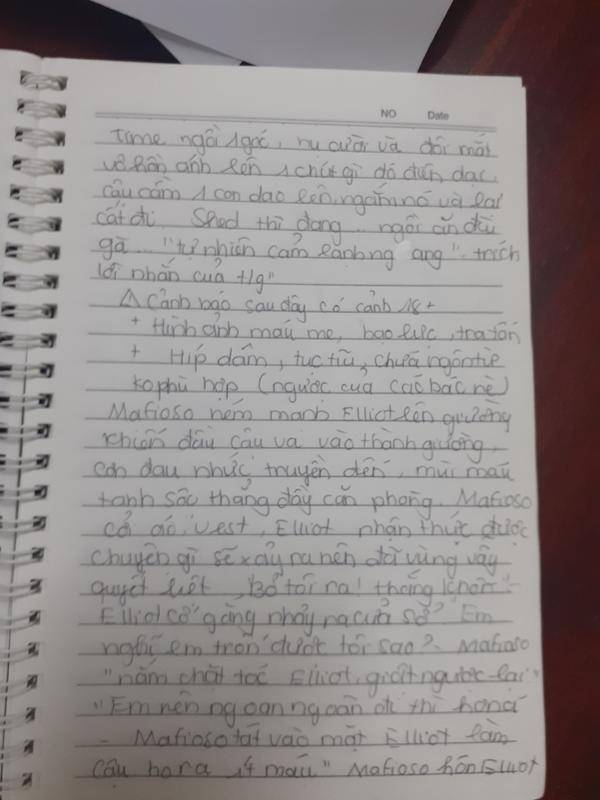 NO Date
Time ngồi 1 góc, nụ cười và đôi mắt
vô hồn ánh lên 1 chút gì đó điên dại,
cậu cầm 1 con dao lên, ngắm nó và lại
cất đi. Shed thì đang ... ngồi ăn đùi
gà ... "tự nhiên cảm lạnh ngang". trích
lời nhắn của t/g"
⚠ Cảnh báo sau đây có cảnh 18+
+ Hình ảnh máu me, bạo lực, tra tấn
+ Hiếp dâm, tục tĩu, chứa ngôn từ
ko phù hợp (ngược của các bác nè)
Mafioso ném mạnh Elliot lên giường
khiến đầu cậu va vào thành giường,
cơn đau nhức truyền đến, mùi máu
tanh sộc thẳng đầy căn phòng. Mafioso
cởi áo vest, Elliot nhận thức được
chuyện gì sẽ xảy ra nên vùng vẫy
quyết liệt, "Bỏ tôi ra! thằng khốn"-
Elliot cố gắng nhảy ra cửa sổ? "Em
nghĩ em trốn được tôi sao?- Mafioso
"nắm chặt tóc Elliot, giật ngược lại"
"Em nên ngoan ngoãn đi thì hơn
- Mafioso tát vào mặt Elliot làm
cậu ho ra ít máu" Mafioso hôn Elliot